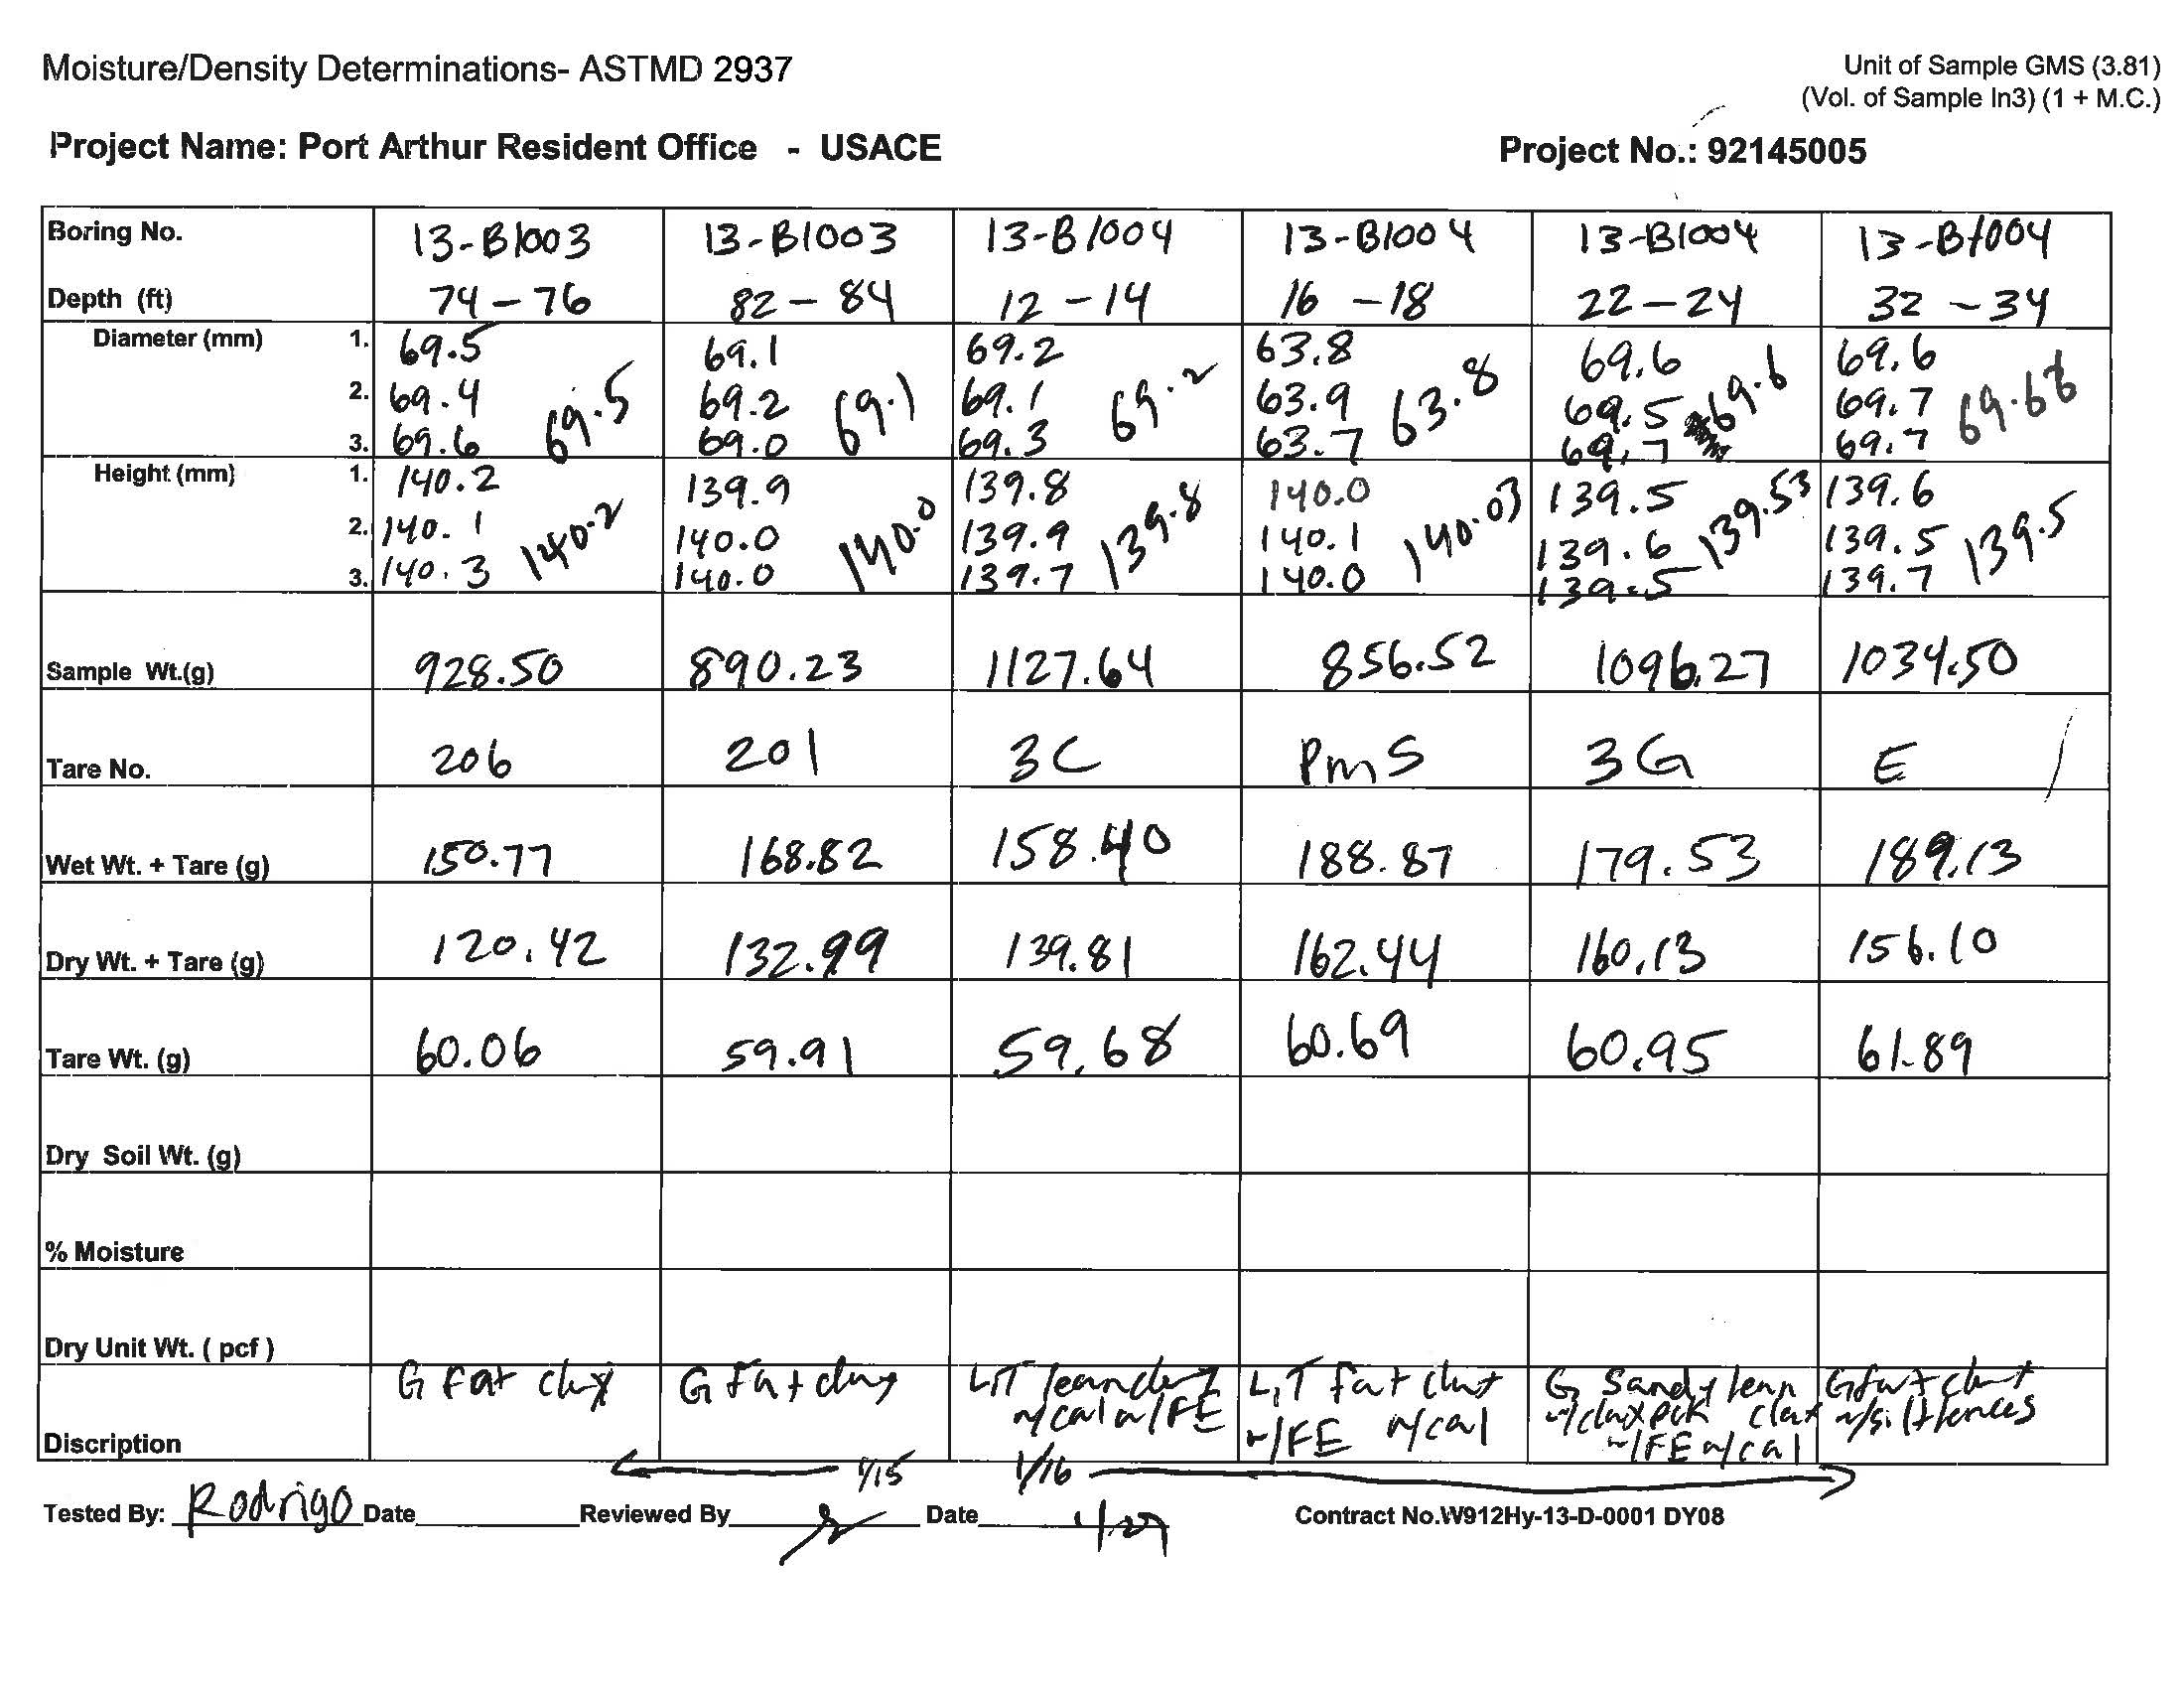 Moisture/Density Determinations- ASTMD 2937
Unit of Sample GMS (3.81)
(Vol. of Sample In3) (1 + M.C.)
Project Name: Port Arthur Resident Office - USACE
Project No.: 92145005
Boring No. 13-B1003 13-B1003 13-B1004 13-B1004 13-B1004 13-B1004
Depth (ft) 74-76 82-84 12-14 16-18 22-24 32-34
Diameter (mm) 1. 69.5 69.1 69.2 63.8 69.6 69.6
2. 69.4 69.5 69.2 69.1 69.1 69.2 63.9 63.8 69.5 69.6 69.7 69.66
3. 69.6 69.0 69.3 63.7 69.7 69.7
Height (mm) 1. 140.2 139.9 139.8 140.0 139.5 139.6
2. 140.1 140.2 140.0 140.0 139.9 139.8 140.1 140.03 139.6 139.53 139.5 139.5
3. 140.3 140.0 139.7 140.0 139.5 139.7
Sample Wt.(g) 928.50 890.23 1127.64 856.52 1096.27 1034.50
Tare No. 206 201 3C PmS 3G E
Wet Wt. + Tare (g) 150.77 168.82 158.40 188.87 179.53 189.13
Dry Wt. + Tare (g) 120.42 132.99 139.81 162.44 160.13 156.10
Tare Wt. (g) 60.06 59.91 59.68 60.69 60.95 61.89
Dry Soil Wt. (g)
% Moisture
Dry Unit Wt. ( pcf )
G Fat clay G Fat clay L,T lean clay L,T fat clay G Sandy lean G fat clay
w/cal w/FE w/FE w/cal clay
w/FE w/cal
Discription
1/15 1/16
Tested By: Rodrigo Date Reviewed By Date 1/27 Contract No.W912Hy-13-D-0001 DY08